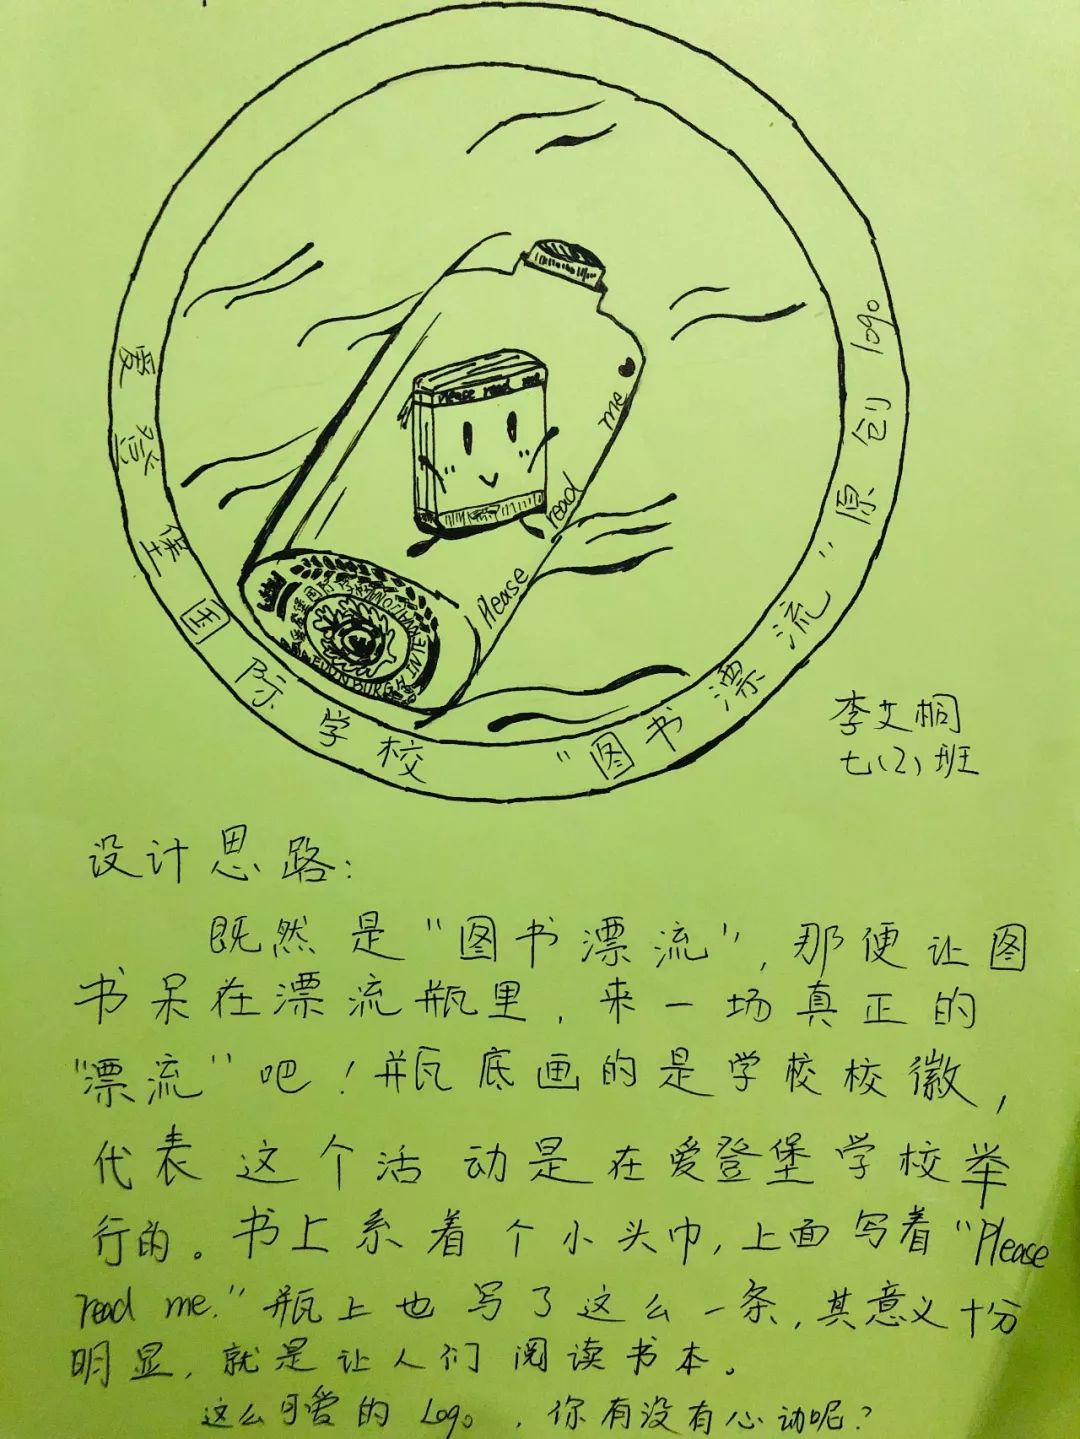 爱登堡国际学校 “图书漂流”原创logo
Please read me
Please read me
爱登堡国际学校
INTERNATIONAL
EDINBURGH
李艾桐
七(2)班
设计思路:
既然是“图书漂流”,那便让图
书呆在漂流瓶里,来一场真正的
“漂流”吧!瓶底画的是学校校徽,
代表这个活动是在爱登堡学校举
行的。书上系着个小头巾,上面写着“Please
read me.”瓶上也写了这么一条,其意义十分
明显,就是让人们阅读书本。
这么可爱的Logo,你有没有心动呢?